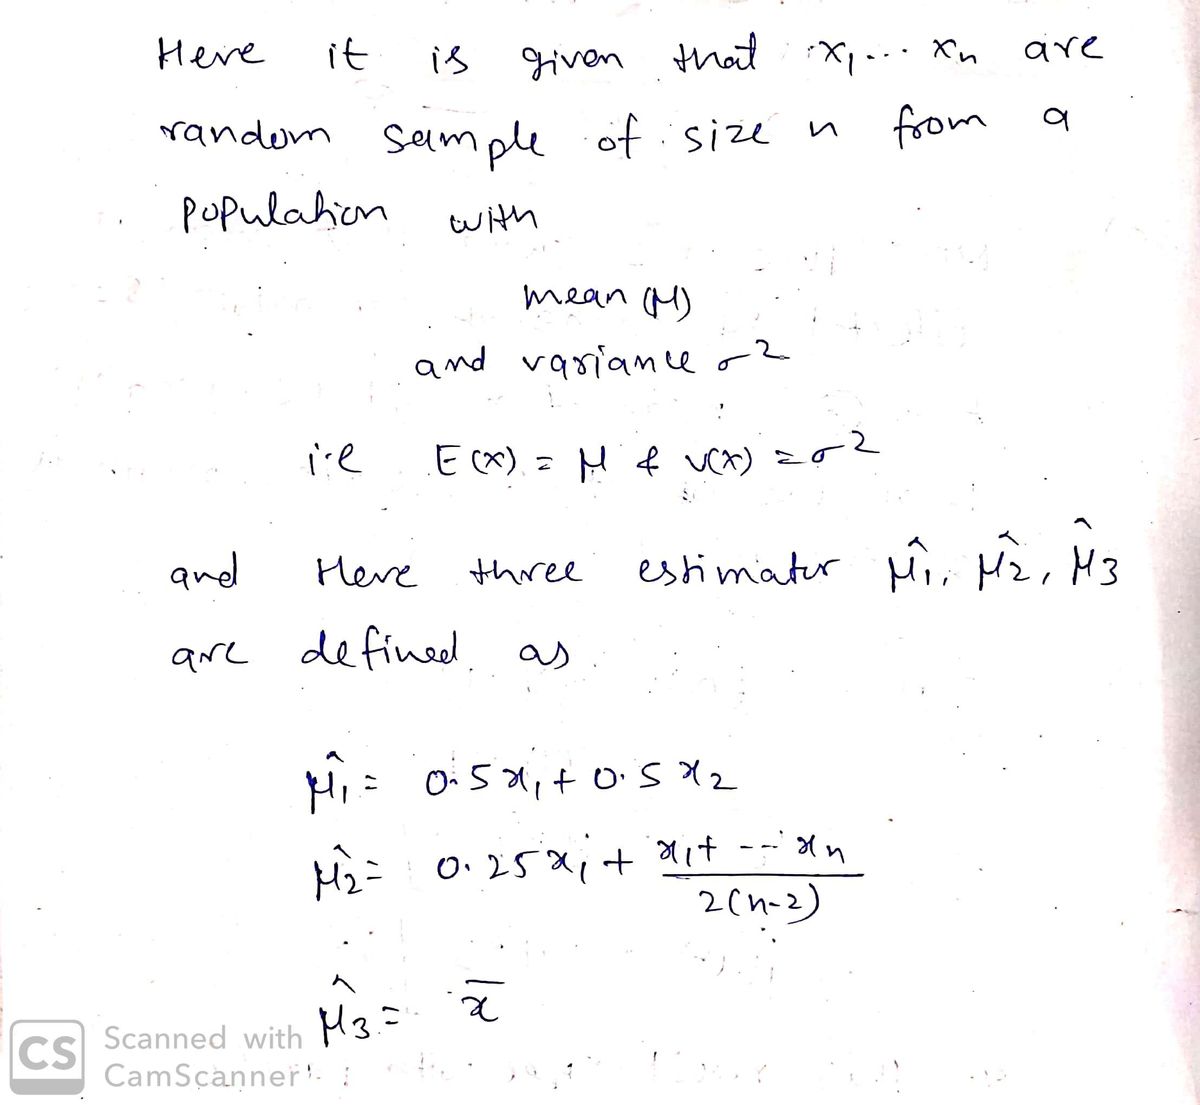 Here it is given that x₁... xₙ are
random sample of size n from a
population with
mean (μ)
and variance σ²
i.e E(x) = μ & V(x) = σ²
and Here three estimator μ̂₁, μ̂₂, μ̂₃
are defined as
μ̂₁ = 0.5x₁ + 0.5x₂
μ̂₂ = 0.25x₁ + (x₁ + --- xₙ) / 2(n-2)
μ̂₃ = x̄
CS Scanned with
CamScanner